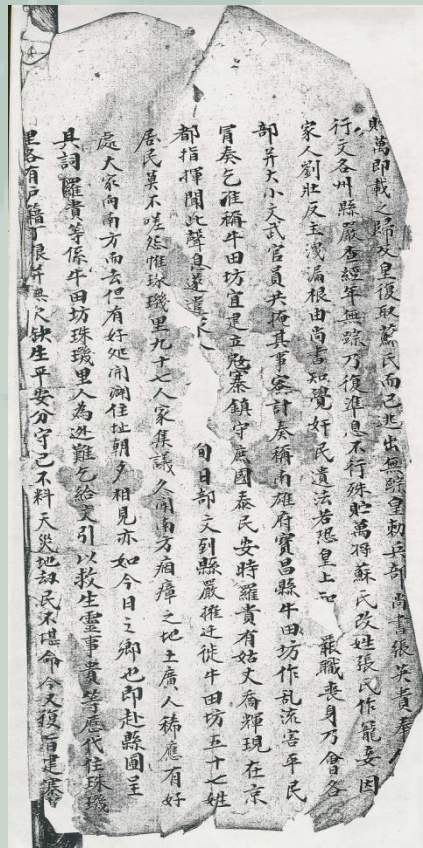 貯萬即載之歸故皇復取蘇氏而已逃出無踪皇勅兵部尚書張英貴奉
行文各州縣嚴查經年無踪乃復準息不行殊貯萬将蘇氏改姓張氏作寵妾因
家人劉壯反主洩漏根由尚書知覺奸民遺法若恐皇上 罪職喪身乃會各
部并大小文武官員共掩其事密計奏稱南雄府寳昌縣牛田坊作乱流害平民
冐奏乞准稱牛田坊宜建立寨鎮守庶國泰民安時羅貴有姑丈喬輝現在京
都指揮聞此聲息遂遣家人 旬日部文到縣嚴推迁徙牛田坊五十七姓
居民莫不嗟怨惟珠璣里九十七人家集議久聞南方烟瘴之地土廣人稀應有好
處大家向南方而去但有好処開闢住址朝夕相見亦如今日之鄉也即赴縣圃呈
具詞羅貴等係牛田坊珠璣里人為迯難乞給文引以救生靈事貴等歷代住珠璣
里各有戸籍丁粮并無欠缺生平安分守己不料天災地劫民不堪命今又復旨建寨